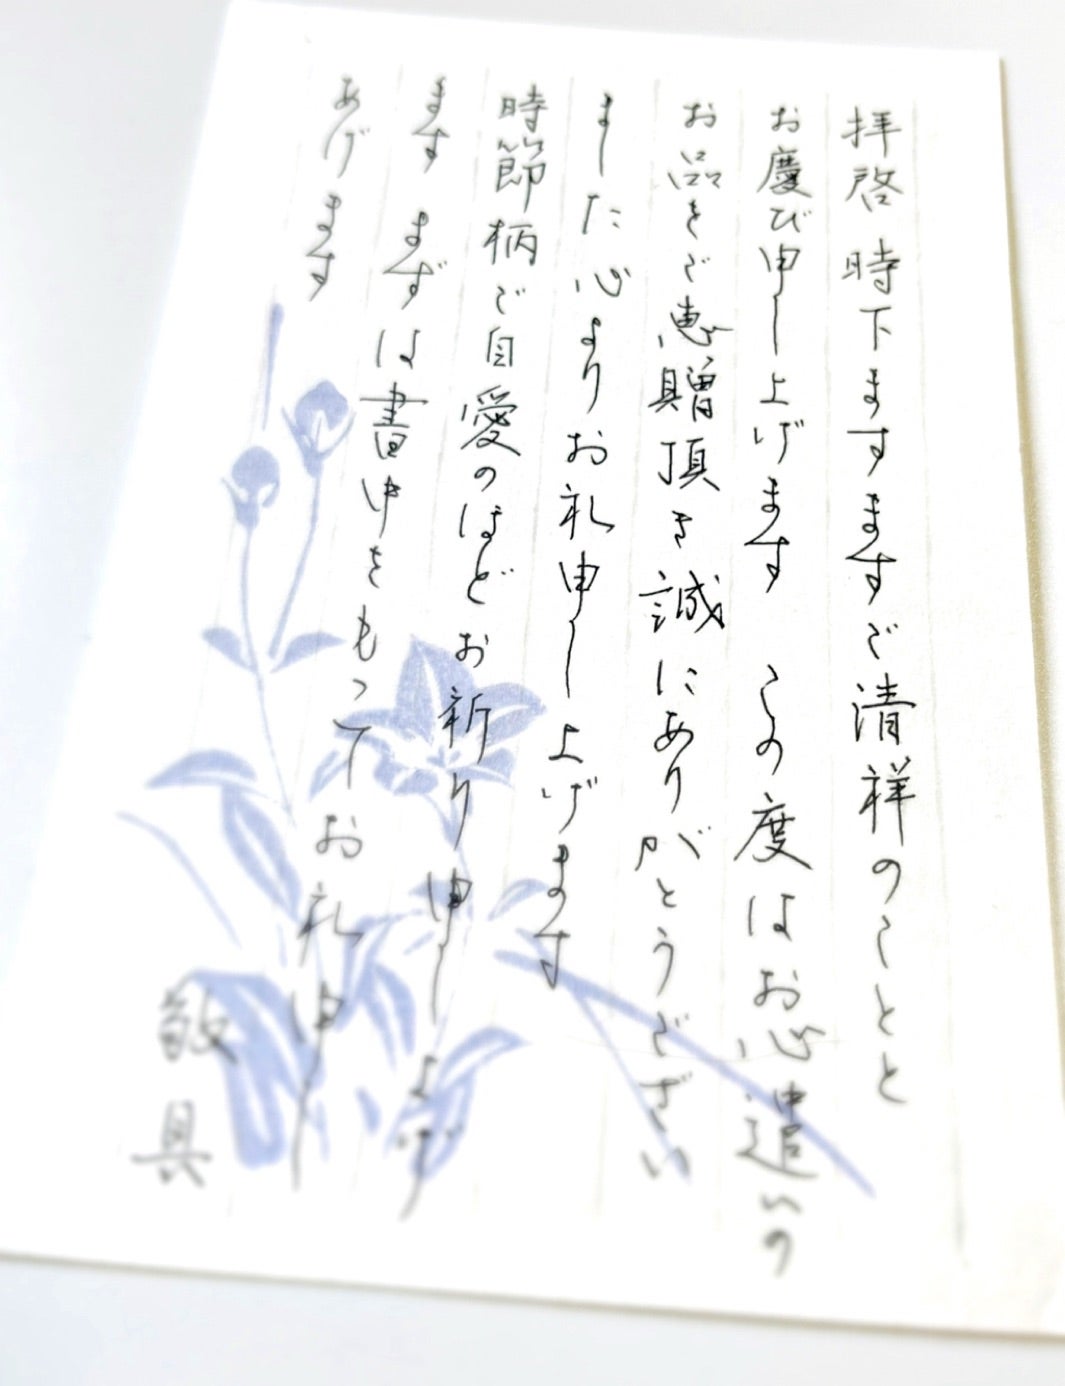 拝啓 時下ますますご清祥のことと
お慶び申し上げます この度はお心遣いの
お品をご恵贈頂き誠にありがとうござい
ました 心よりお礼申し上げます
時節柄ご自愛のほどお祈り申し上げ
ます まずは書中をもってお礼申し
あげます
敬具